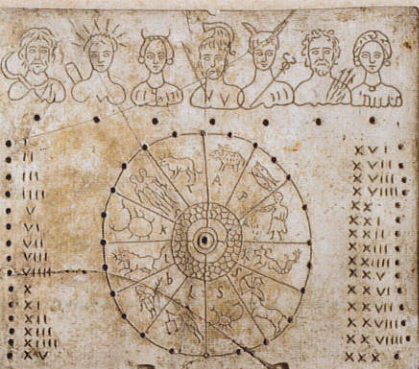 A P
K K
b L S
I
II
III
IIII
V
VI
VII
VIII
VIIII
X
XI
XII
XIII
XIIII
XV
XVI
XVII
XVIII
XVIIII
XX
XXI
XXII
XXIII
XXIIII
XXV
XXVI
XXVII
XXVIII
XXVIIII
XXX